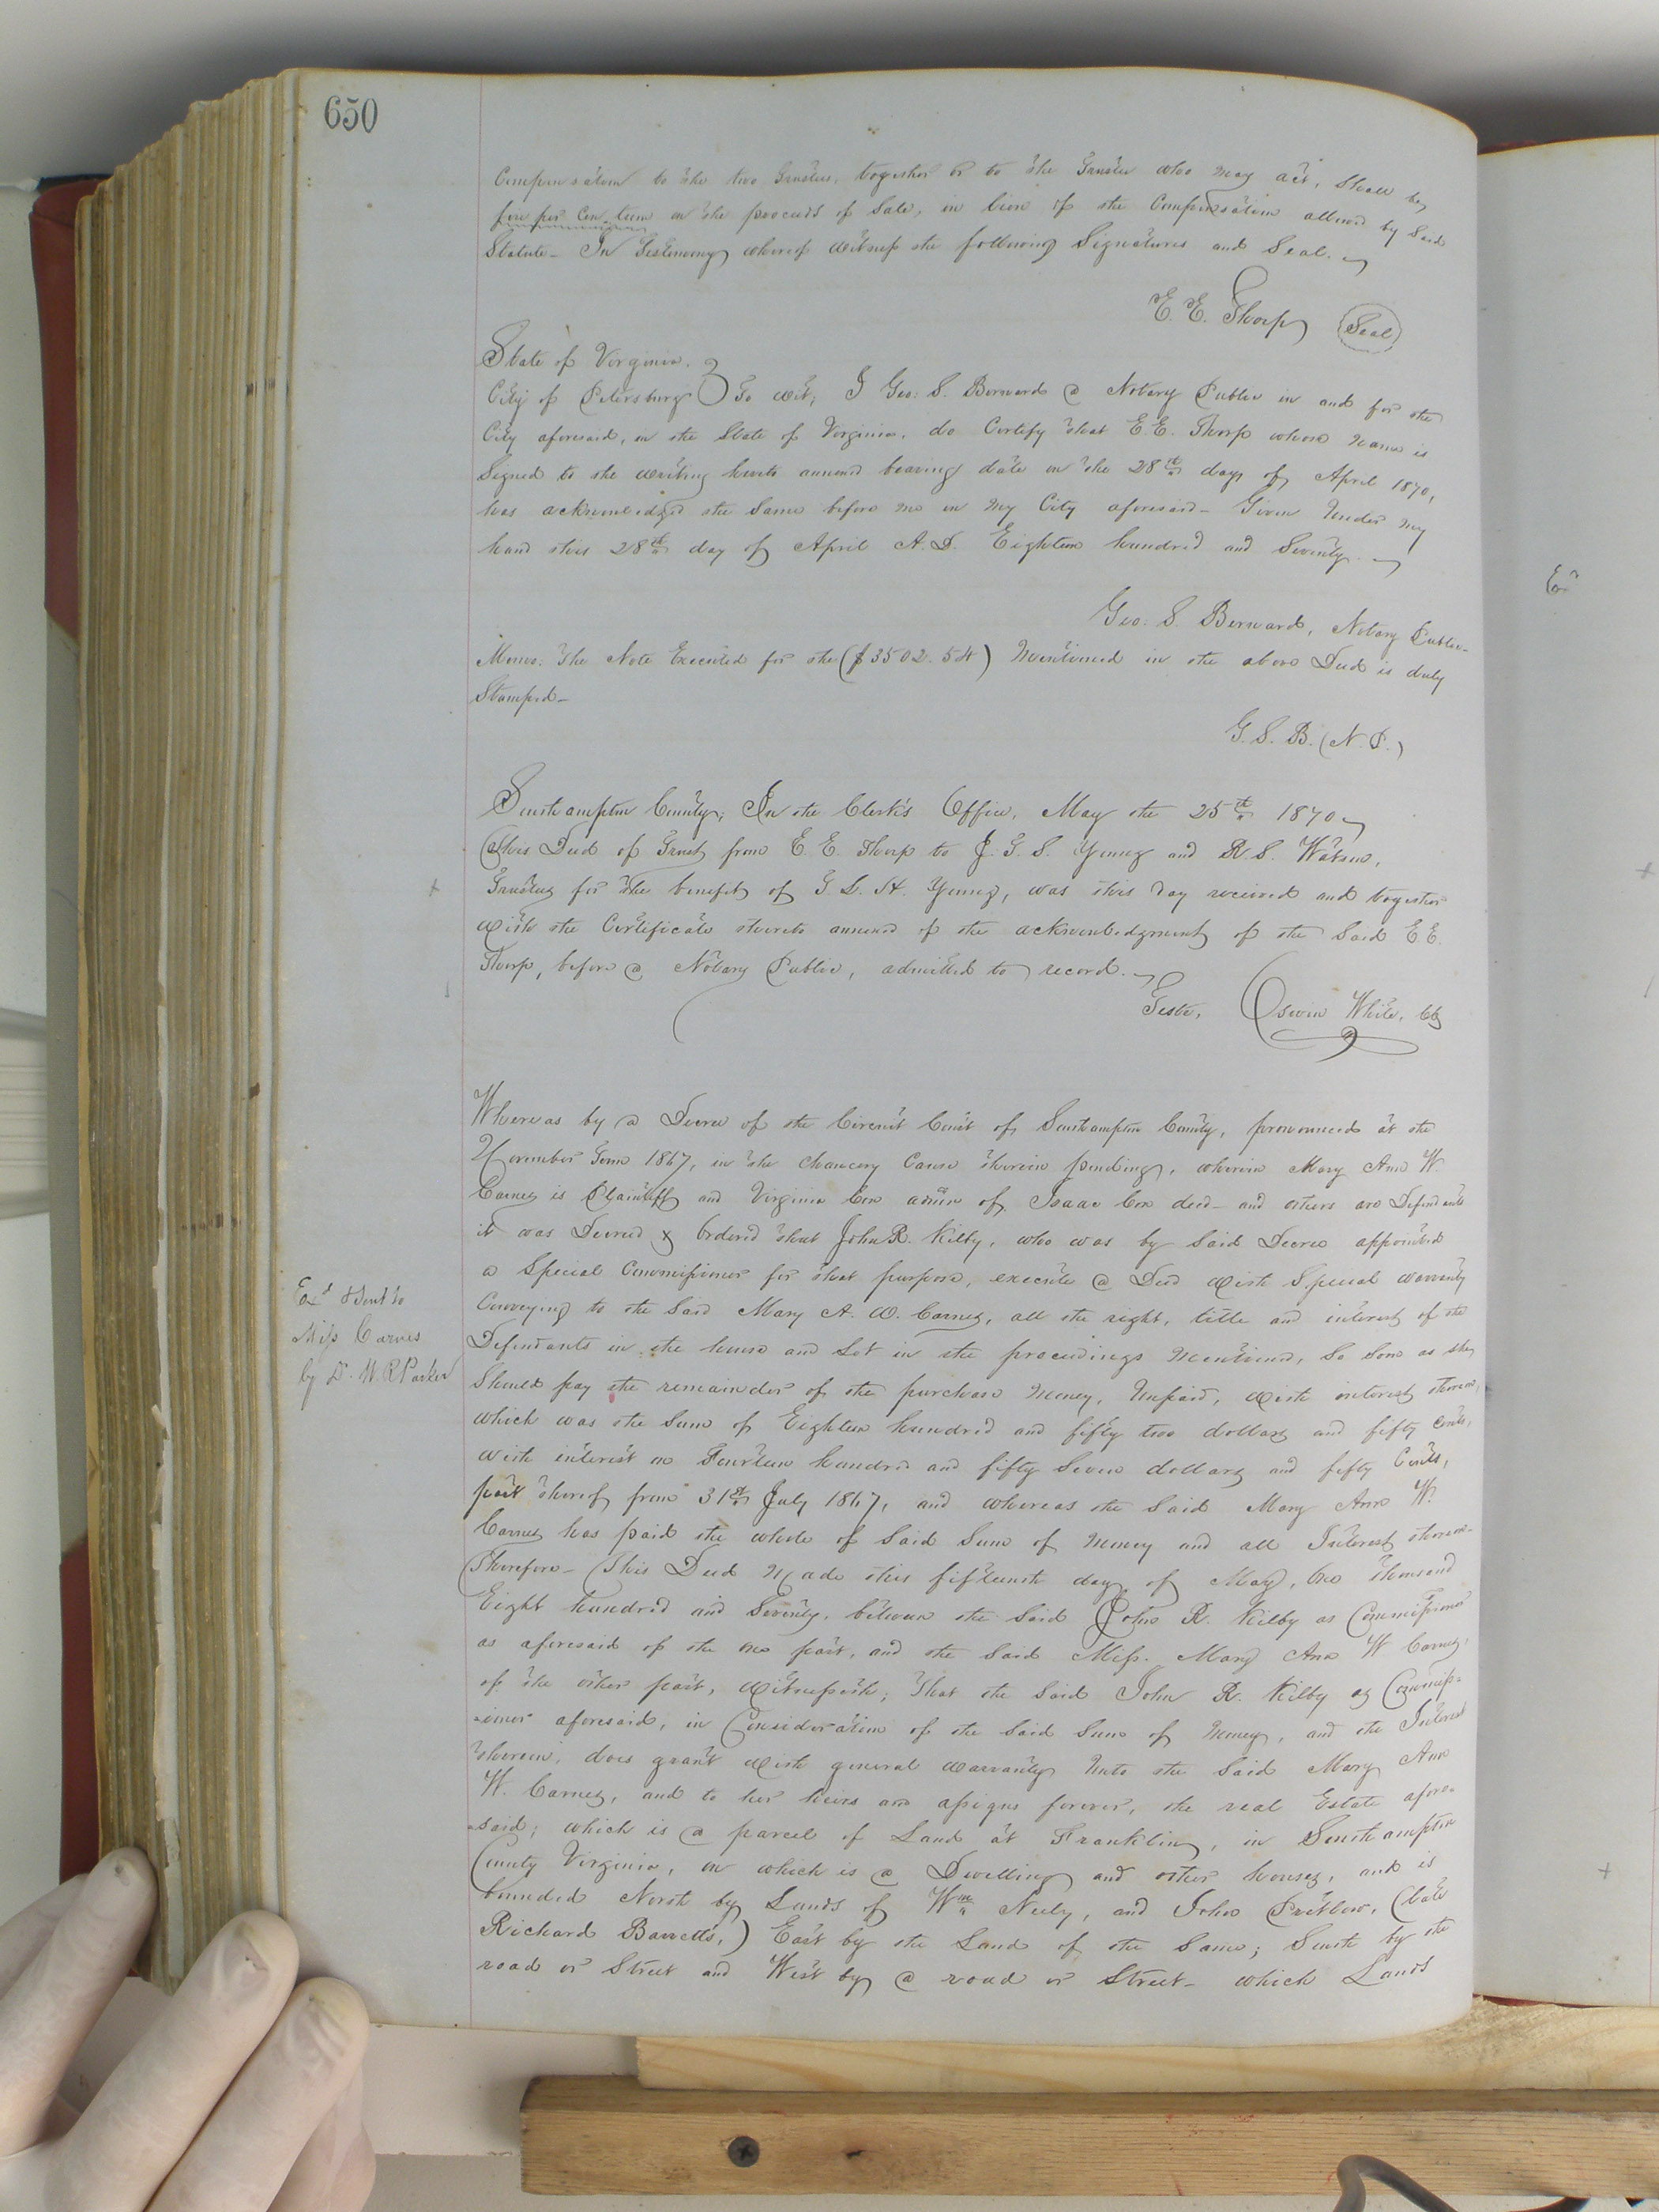 650
Compensation to the two Trustees, together or to the Trustee who may act, shall be,
five per Centum on the proceeds of Sale, in lieu of the Compensation allowed by Said
Statute - In Testimony whereof witness the following Signatures and Seal.
E. E. Thorp (Seal)
State of Virginia.
City of Petersburg To wit; I Geo: S. Bernard a Notary Public in and for the
City aforesaid, in the State of Virginia, do Certify that E. E. Thorp whose name is
Signed to the writing hereto annexed bearing date on the 28th day of April 1870,
has acknowledged the Same before me in my City aforesaid - Given Under my
hand this 28th day of April A.D. Eighteen hundred and Seventy.
Geo: S. Bernard, Notary Public -
Memo. The Note Executed for the ($3502.54) Mentioned in the above Deed is duly
Stamped -
G. S. B. (N. P.)
Southampton County; In the Clerk's Office, May the 25th 1870
This Deed of Trust from E. E. Thorp to J. G. S. Young and R. S. Watson,
Trustees for the benefit of G. L. H. Young, was this day received and together
with the Certificate thereto annexed of the acknowledgment of the Said E. E.
Thorp, before a Notary Public, admitted to record.
Teste, Oswin White, CC
Whereas by a Decree of the Circuit Court of Southampton County, pronounced at the
November Term 1867, in the Chancery Cause therein pending, wherein Mary Ann W
Carney is Plaintiff and Virginia Cox admx of Isaac Cox decd - and others are Defendants
it was Decreed & Ordered that John R. Kilby, who was by Said Decree appointed
a Special Commissioner for that purpose, execute a Deed with Special warranty
Exd & Sent to
Miss Carnes
by Dr. W. R Parker
Conveying to the Said Mary A. W. Carney, all the right, title and interest of the
Defendants in the house and Lot in the proceedings Mentioned, So Soon as she
Should pay the remainder of the purchase Money, Unpaid, with interest thereon,
which was the Sum of Eighteen hundred and fifty two dollars and fifty Cents,
with interest on Fourteen hundred and fifty Seven dollars and fifty Cents,
part thereof from 31st July 1867, and whereas the Said Mary Ann W.
Carney has paid the whole of Said Sum of Money and all Interest thereon -
Therefore - This Deed Made this fifteenth day of May, One thousand
Eight hundred and Seventy, between the Said John R. Kilby as Commissioner
as aforesaid of the one part, and the Said Miss. Mary Ann W Carney,
of the other part, Witnesseth; That the Said John R. Kilby as Commiss-
-ioner aforesaid, in Consideration of the Said Sum of Money, and the Interest
thereon, does grant with general warranty Unto the Said Mary Ann
W. Carney, and to her heirs and assigns forever, the real Estate afore-
-said; which is a parcel of Land at Franklin, in Southampton
County Virginia, on which is a Dwelling and other houses, and is
bounded North by Lands of Wm Neely, and John Pretlow, (late
Richard Barretts,) East by the Land of the Same; South by the
road or Street and West by a road or Street - which Lands